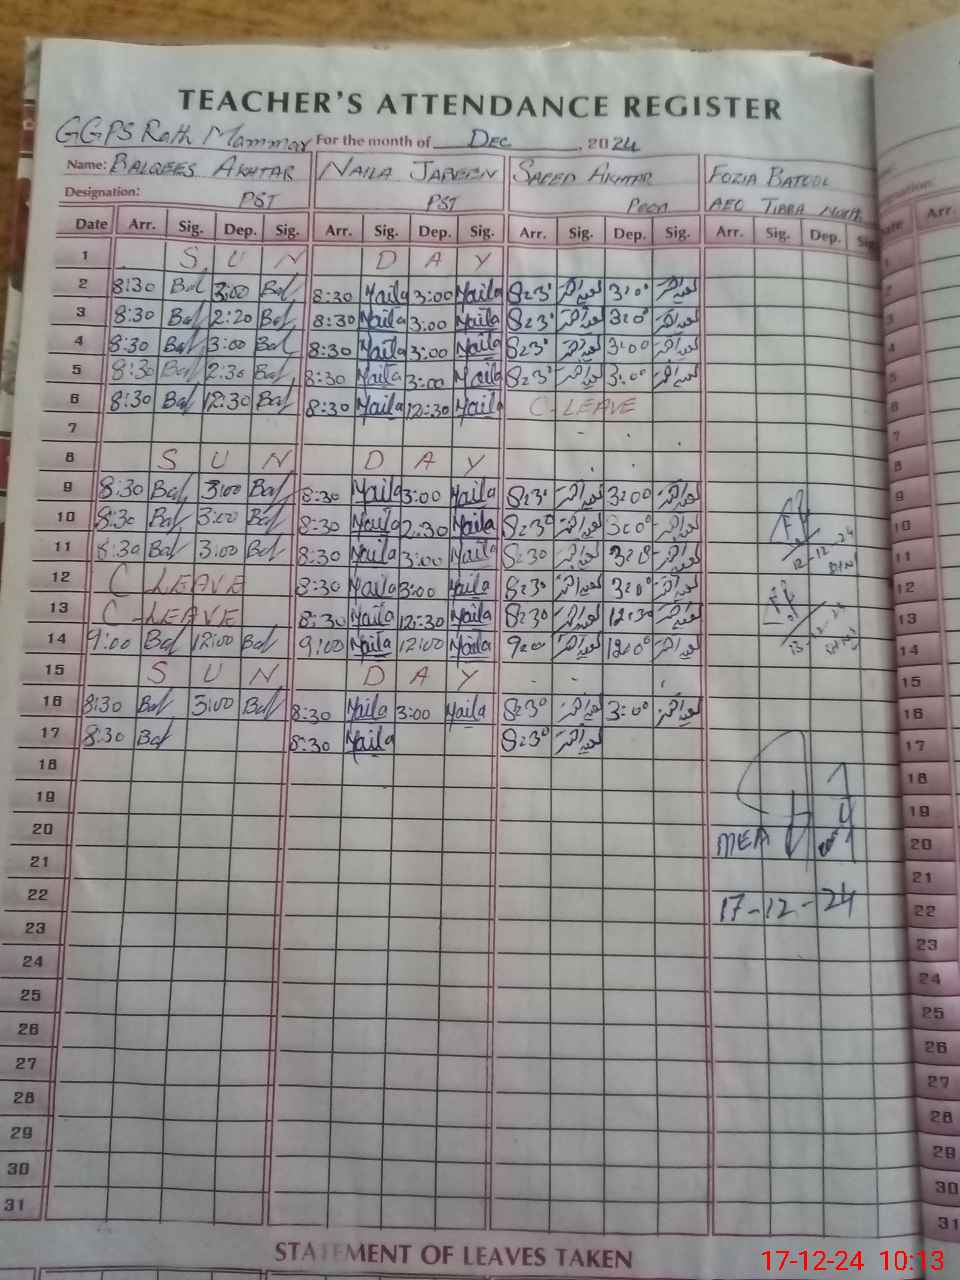 TEACHER'S ATTENDANCE REGISTER
GGPS Rath Mammar For the month of DEC, 2024
Name: BALQEES AKHTAR NAILA JABEEN SAEED AKHTAR FOZIA BATOOL
Designation: PST PST Peon AEO TIBBA North
Date Arr. Sig. Dep. Sig. Arr. Sig. Dep. Sig. Arr. Sig. Dep. Sig. Arr. Sig. Dep. Arr.
1 S U N D A Y
2 8:30 Bal 3:00 Bal 8:30 Naila 3:00 Naila 8:30 3:00
3 8:30 Bal 2:20 Bal 8:30 Naila 3:00 Naila 8:30 3:00
4 8:30 Bal 3:00 Bal 8:30 Naila 3:00 Naila 8:30 3:00
5 8:30 Bal 2:30 Bal 8:30 Naila 3:00 Naila 8:30 3:00
6 8:30 Bal 12:30 Bal 8:30 Naila 12:30 Naila C-LEAVE
7
8 S U N D A Y
9 8:30 Bal 3:00 Bal 8:30 Naila 3:00 Naila 8:30 3:00
10 8:30 Bal 3:00 Bal 8:30 Naila 2:30 Naila 8:30 3:00
11 8:30 Bal 3:00 Bal 8:30 Naila 3:00 Naila 8:30 3:00 12-12-24
12 C LEAVE 8:30 Naila 3:00 Naila 8:30 3:00
13 C-LEAVE 8:30 Naila 12:30 Naila 8:30 12:30
14 9:00 Bal 12:00 Bal 9:00 Naila 12:00 Naila 9:00 12:00
15 S U N D A Y
16 8:30 Bal 3:00 Bal 8:30 Naila 3:00 Naila 8:30 3:00
17 8:30 Bal 8:30 Naila 8:30
18
19
20 MEA
21
22 17-12-24
23
24
25
26
27
28
29
30
31
STATEMENT OF LEAVES TAKEN
17-12-24 10:13